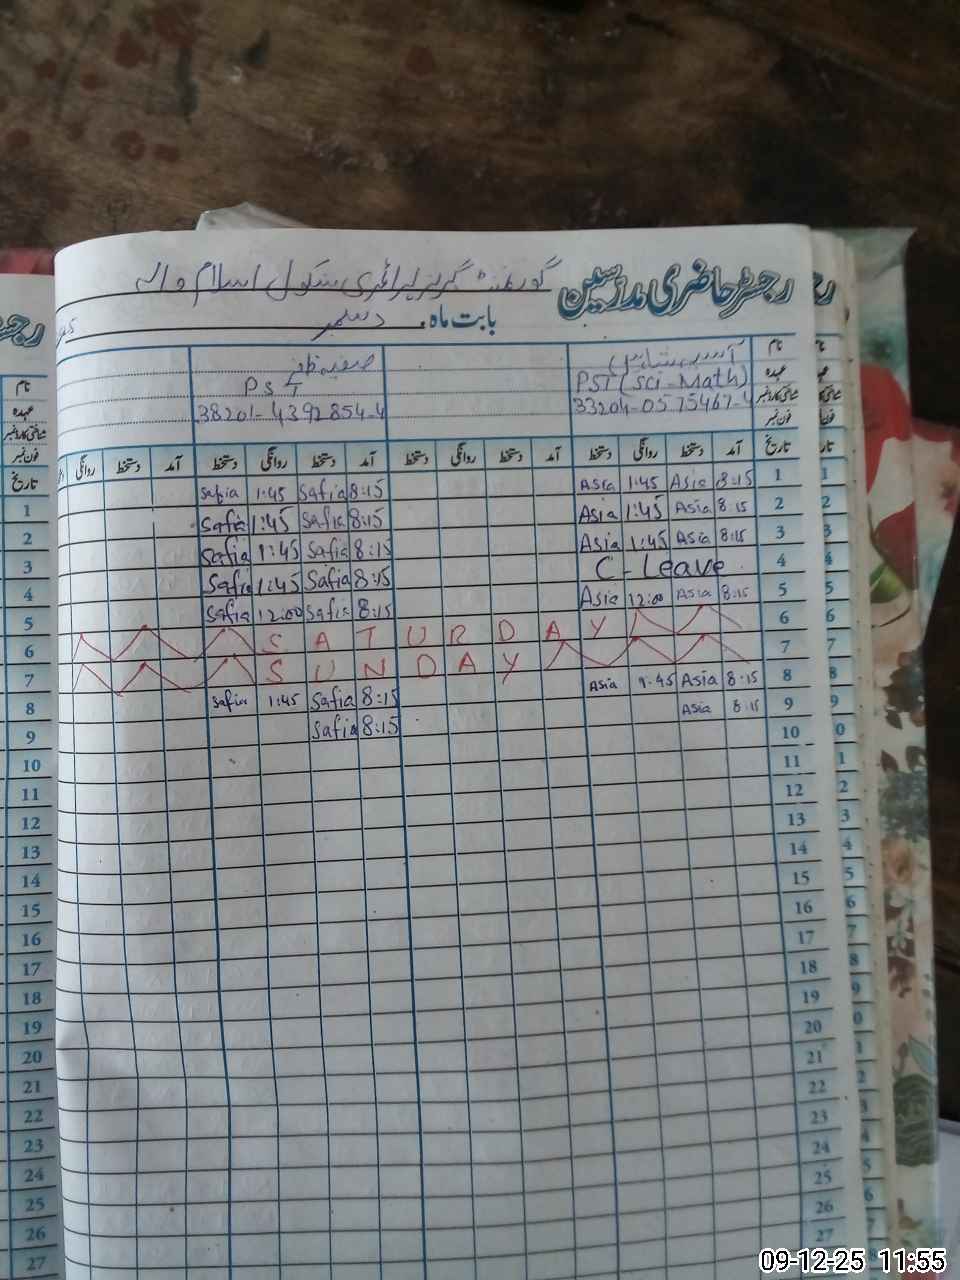 رجسٹر حاضری مدرسین گورنمنٹ گرلز پرائمری سکول اسلام والہ
بابت ماہ دسمبر
نام آسیہ شاہین صفیہ
عہدہ PST (Sci-Math) PST
شناختی کارڈ نمبر 33204-0575467-4 38201-4392854-4
فون نمبر
تاریخ آمد دستخط روانگی دستخط آمد دستخط روانگی دستخط آمد دستخط روانگی دستخط آمد دستخط روانگی
1 8:15 Asia 1:45 Asia 8:15 Safia 1:45 Safia
2 8:15 Asia 1:45 Asia 8:15 Safia 1:45 Safia
3 8:15 Asia 1:45 Asia 8:15 Safia 1:45 Safia
4 C-Leave 8:15 Safia 1:45 Safia
5 8:15 Asia 12:00 Asia 8:15 Safia 12:00 Safia
6 SATURDAY
7 SUNDAY
8 8:15 Asia 1:45 Asia 8:15 Safia 1:45 Safia
9 8:15 Asia 8:15 Safia
10
11
12
13
14
15
16
17
18
19
20
21
22
23
24
25
26
27
09-12-25 11:55